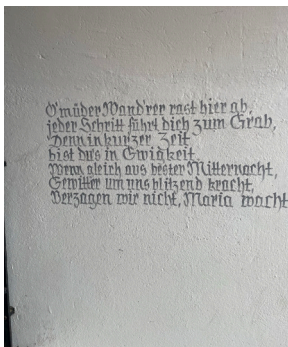 O müder Wand'rer rast hier ab,
jeder Schritt führt dich zum Grab,
Denn in kurzer Zeit
bist du's in Ewigkeit.
Wenn gleich aus bester Mitternacht,
Gewitter um uns blitzend kracht,
Verzagen wir nicht, Maria wacht